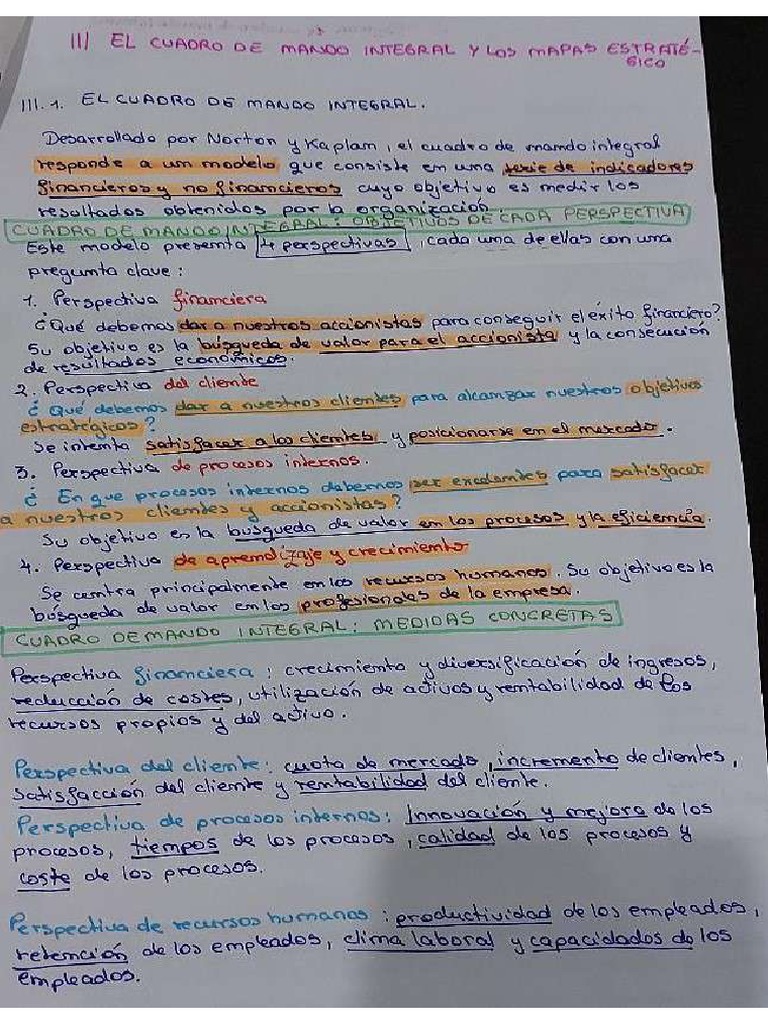 III EL CUADRO DE MANDO INTEGRAL Y LOS MAPAS ESTRATÉ-
GICO
III.1. EL CUADRO DE MANDO INTEGRAL.
Desarrollado por Norton y Kaplam, el cuadro de mando integral
responde a un modelo que consiste en una serie de indicadores
financieros y no financieros cuyo objetivo es medir los
resultados obtenidos por la organización.
CUADRO DE MANDO INTEGRAL: OBJETIVOS DE CADA PERSPECTIVA
Este modelo presenta 4 perspectivas, cada una de ellas con una
pregunta clave:
1. Perspectiva financiera
¿Qué debemos dar a nuestros accionistas para conseguir el éxito financiero?
Su objetivo es la búsqueda de valor para el accionista y la consecución
de resultados económicos.
2. Perspectiva del cliente
¿Qué debemos dar a nuestros clientes para alcanzar nuestros objetivos
estratégicos?
Se intenta satisfacer a los clientes y posicionarse en el mercado.
3. Perspectiva de procesos internos.
¿En que procesos internos debemos ser excelentes para satisfacer
a nuestros clientes y accionistas?
Su objetivo es la búsqueda de valor en los procesos y la eficiencia.
4. Perspectiva de aprendizaje y crecimiento
Se centra principalmente en los recursos humanos. Su objetivo es la
búsqueda de valor en los profesionales de la empresa.
CUADRO DE MANDO INTEGRAL: MEDIDAS CONCRETAS
Perspectiva financiera: crecimiento y diversificación de ingresos,
reducción de costes, utilización de activos y rentabilidad de los
recursos propios y del activo.
Perspectiva del cliente: cuota de mercado, incremento de clientes,
satisfacción del cliente y rentabilidad del cliente.
Perspectiva de procesos internos: Innovación y mejora de los
procesos, tiempos de los procesos, calidad de los procesos y
coste de los procesos.
Perspectiva de recursos humanos: productividad de los empleados,
retención de los empleados, clima laboral y capacidades de los
empleados.